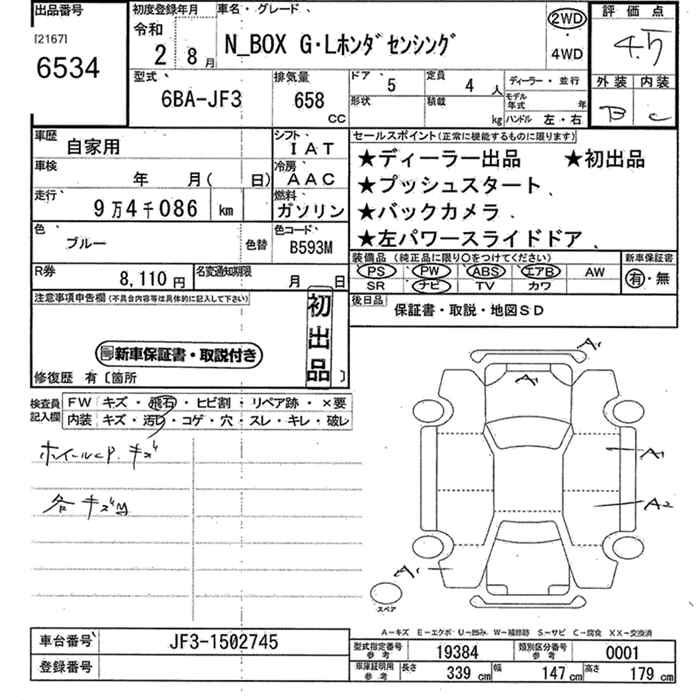 出品番号
[2167]
6534
初度登録年月
令和
2 8月
車名・グレード、
N_BOX G・Lホンダセンシング
2WD
・
4WD
評価点
4.5
外装 内装
B C
型式、
6BA-JF3
排気量
658
CC
ドア、
5
定員
4人
形状
積載
kg
ディーラー・並行
モデル年式 年
ハンドル 左・右
車歴
自家用
シフト、
IAT
車検
年 月( 日)
冷房、
AAC
走行、
9万4千086 km
燃料、
ガソリン
色、
ブルー
色替
色コード、
B593M
R券
8,110円
名変通知期限
月 日
セールスポイント(正常に機能するものに限ります)
★ディーラー出品 ★初出品
★プッシュスタート、
★バックカメラ、
★左パワースライドドア、
装備品(純正品に限り○をつけてください)
PS PW ABS エアB AW
SR ナビ TV カワ
新車保証書
有・無
後日品
保証書・取説・地図SD
注意事項申告欄(不具合内容等は具体的に記入して下さい)
初出品
新車保証書・取説付き
修復歴 有〔箇所 〕
検査員記入欄
FW キズ・飛石・ヒビ割・リペア跡・×要
内装 キズ・汚れ・コゲ・穴・スレ・キレ・破レ
ホイールcP.キズ
各キズ
A1
A1
A1
A2
スペア
A-キズ E-エクボ U-凹み W-補修跡 S-サビ C-腐食 XX-交換済
車台番号
JF3-1502745
登録番号
型式指定番号 参考
19384
類別区分番号 参考
0001
車庫証明用 参考
長さ 339cm 幅 147cm 高さ 179cm